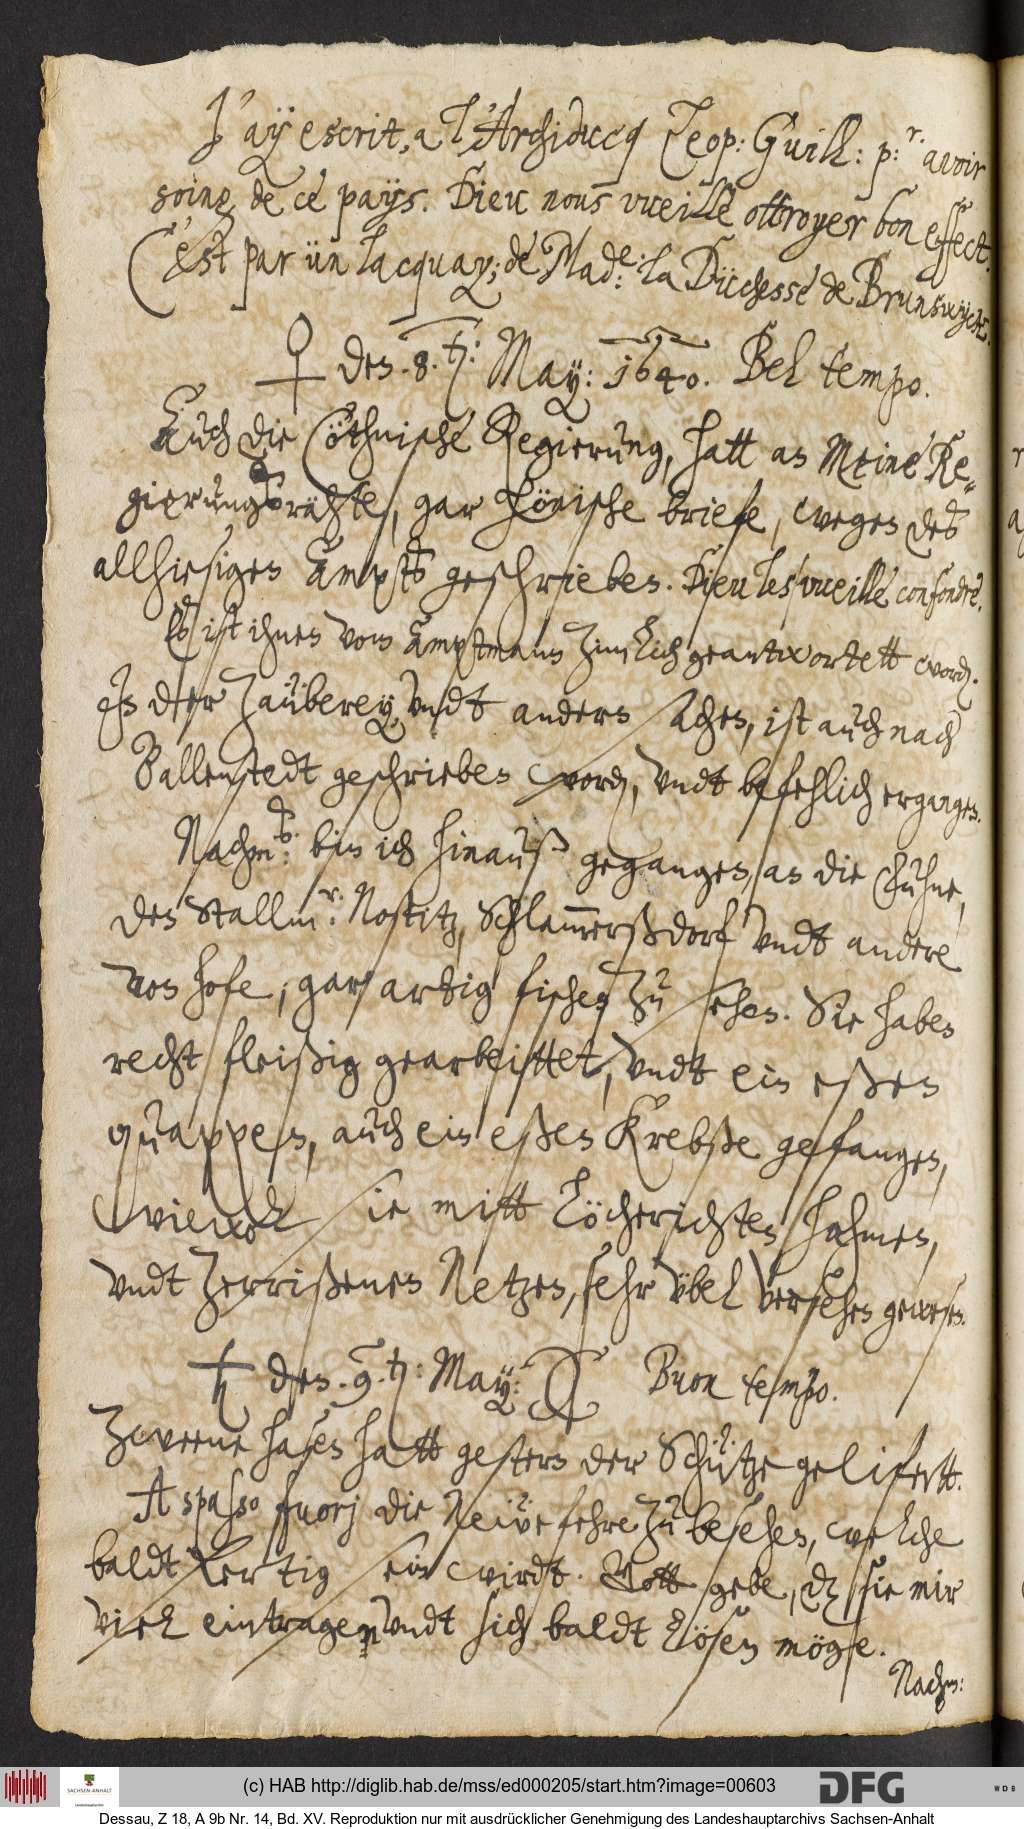 J'aÿ escrit, a l'Archiducq Leop: Guill: p:r avoir
soing de ce paÿs. Dieu nous vueille ottroyer bon effect.
C'est par ün lacquay, de Made: la Düchesse de Brunswyck.
♀ den. 8.th: May: 1640. Bel tempo.
Auch die Cöthnische Regierung, hatt an Meine Re-
gierungßrähte, gar hönische briefe, wegen deß
allhiesigen Ampts geschrieben. Dieu les vueille confondre.
Eß ist ihnen vom Amptmann zimlich geantwortett word.
Jn der Zauberey undt andern sachen, ist auch nach
Ballenstedt geschrieben word, undt befehlich ergangen.
Nachmß: bin ich hinauß gegangen, an die Fuhne,
den Stallmr: Nostitz, Schlammerßdorf undt andere
von hofe, gar artig fischen zu sehen. Sie haben
recht fleißig gearbeittet, undt ein eßen
quappen, auch ein eßen Krebße gefangen,
wiewol sie mitt löcherichten hahmen,
undt zerrißenen Netzen, sehr übel versehen gewesen.
♄ den. 9.th: May: Buon tempo.
Zweene hasen hatt gestern der Schütze gelifertt.
A spasso fuorj die Neüe fehre zu besehen, welche
baldt fertig sein wirdt. Gott gebe, dz sie mir
viel eintragen undt sich baldt lösen möge.
Nachm:
(c) HAB http://diglib.hab.de/mss/ed000205/start.htm?image=00603
SACHSEN-ANHALT
DFG
WDB
Dessau, Z 18, A 9b Nr. 14, Bd. XV. Reproduktion nur mit ausdrücklicher Genehmigung des Landeshauptarchivs Sachsen-Anhalt